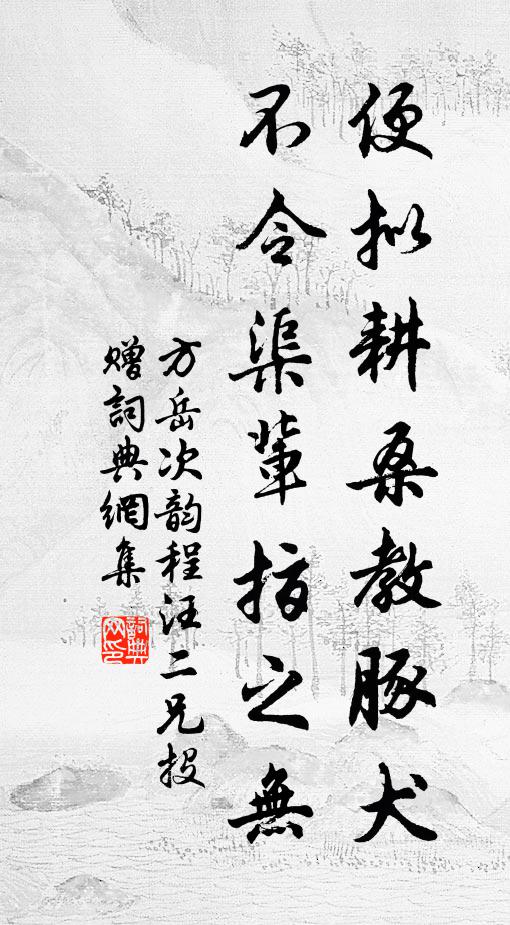 便拟耕桑教豚犬
不令渠輩指之無
方岳次韵程汪二兄投
赠詞典網集
詞典網印